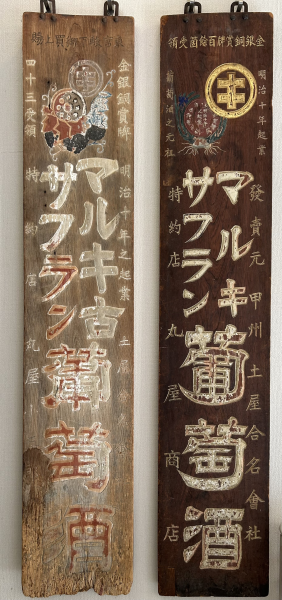 金銀銅賞牌百餘箇受領
キ
明治十年起業
葡萄酒之元祖
發賣元 甲州土屋合名會社
マルキ
サフラン
葡萄酒
特約店 丸屋商店
キ
金銀銅賞牌
四十三受領
明治十年之起業
マルキ古
サフラン
葡萄酒
特約店 丸屋